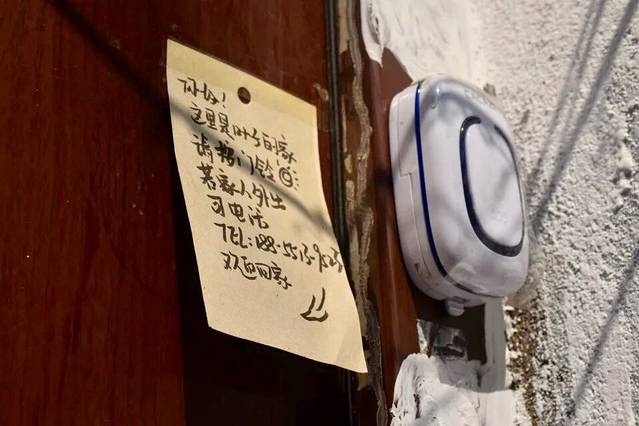 你好!
这里是叶子的家
请按门铃
若家人外出
可电话
TEL:188-5513-9525
欢迎回家